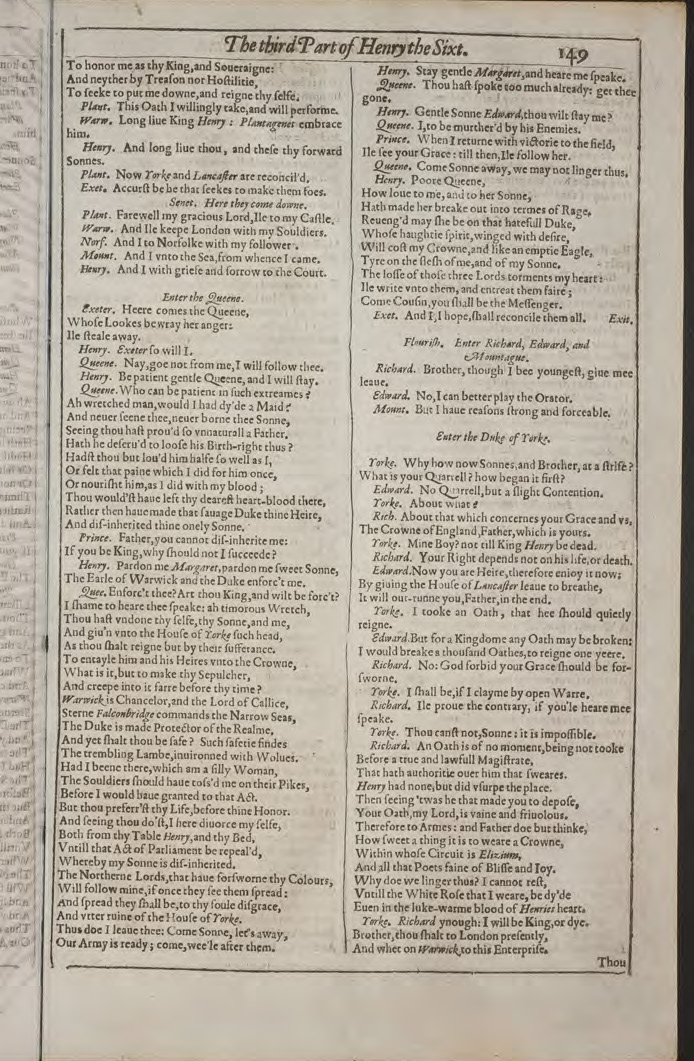 The third Part of Henry the Sixt.
149
To honor me as thy King, and Soueraigne:
And neyther by Treason nor Hostilitie,
To seeke to put me downe, and reigne thy selfe.
Plant. This Oath I willingly take, and will performe.
Warw. Long liue King Henry: Plantagenet embrace
him.
Henry. And long liue thou, and these thy forward
Sonnes.
Plant. Now Yorke and Lancaster are reconcil'd.
Exet. Accurst be he that seekes to make them foes.
Senet. Here they come downe.
Plant. Farewell my gracious Lord, Ile to my Castle.
Warw. And Ile keepe London with my Souldiers.
Norf. And I to Norfolke with my follower.
Mount. And I vnto the Sea, from whence I came.
Henry. And I with griefe and sorrow to the Court.
Enter the Queene.
Exeter. Heere comes the Queene,
Whose Lookes bewray her anger:
Ile steale away.
Henry. Exeter so will I.
Queene. Nay, goe not from me, I will follow thee.
Henry. Be patient gentle Queene, and I will stay.
Queene. Who can be patient in such extreames?
Ah wretched man, would I had dy'de a Maid?
And neuer seene thee, neuer borne thee Sonne,
Seeing thou hast prou'd so vnnaturall a Father.
Hath he deseru'd to loose his Birth-right thus?
Hadst thou but lou'd him halfe so well as I,
Or felt that paine which I did for him once,
Or nourisht him, as I did with my blood;
Thou would'st haue left thy dearest heart-blood there,
Rather then haue made that sauage Duke thine Heire,
And dis-inherited thine onely Sonne.
Prince. Father, you cannot dis-inherite me:
If you be King, why should not I succeede?
Henry. Pardon me Margaret, pardon me sweet Sonne,
The Earle of Warwick and the Duke enforc't me.
Quee. Enforc't thee? Art thou King, and wilt be forc't?
I shame to heare thee speake: ah timorous Wretch,
Thou hast vndone thy selfe, thy Sonne, and me,
And giu'n vnto the House of Yorke such head,
As thou shalt reigne but by their sufferance.
To entayle him and his Heires vnto the Crowne,
What is it, but to make thy Sepulcher,
And creepe into it farre before thy time?
Warwick is Chancelor, and the Lord of Callice,
Sterne Falconbridge commands the Narrow Seas,
The Duke is made Protector of the Realme,
And yet shalt thou be safe? Such safetie findes
The trembling Lambe, inuironned with Wolues.
Had I beene there, which am a silly Woman,
The Souldiers should haue toss'd me on their Pikes,
Before I would haue granted to that Act.
But thou preferr'st thy Life, before thine Honor.
And seeing thou do'st, I here diuorce my selfe,
Both from thy Table Henry, and thy Bed,
Vntill that Act of Parliament be repeal'd,
Whereby my Sonne is dis-inherited.
The Northerne Lords, that haue forsworne thy Colours,
Will follow mine, if once they see them spread:
And spread they shall be, to thy foule disgrace,
And vtter ruine of the House of Yorke.
Thus doe I leaue thee: Come Sonne, let's away,
Our Army is ready; come, wee'le after them.
Henry. Stay gentle Margaret, and heare me speake.
Queene. Thou hast spoke too much already: get thee
gone.
Henry. Gentle Sonne Edward, thou wilt stay me?
Queene. I, to be murther'd by his Enemies.
Prince. When I returne with victorie to the field,
Ile see your Grace: till then, Ile follow her.
Queene. Come Sonne away, we may not linger thus.
Henry. Poore Queene,
How loue to me, and to her Sonne,
Hath made her breake out into termes of Rage.
Reueng'd may she be on that hatefull Duke,
Whose haughtie spirit, winged with desire,
Will cost my Crowne, and like an emptie Eagle,
Tyre on the flesh of me, and of my Sonne.
The losse of those three Lords torments my heart:
Ile write vnto them, and entreat them faire;
Come Cousin, you shall be the Messenger.
Exet. And I, I hope, shall reconcile them all. Exit.
Flourish. Enter Richard, Edward, and
Mountague.
Richard. Brother, though I bee youngest, giue mee
leaue.
Edward. No, I can better play the Orator.
Mount. But I haue reasons strong and forceable.
Enter the Duke of Yorke.
Yorke. Why how now Sonnes, and Brother, at a strife?
What is your Quarrell? how began it first?
Edward. No Quarrell, but a slight Contention.
Yorke. About what?
Rich. About that which concernes your Grace and vs,
The Crowne of England, Father, which is yours.
Yorke. Mine Boy? not till King Henry be dead.
Richard. Your Right depends not on his life, or death.
Edward. Now you are Heire, therefore enioy it now:
By giuing the House of Lancaster leaue to breathe,
It will out-runne you, Father, in the end.
Yorke. I tooke an Oath, that hee should quietly
reigne.
Edward. But for a Kingdome any Oath may be broken:
I would breake a thousand Oathes, to reigne one yeere.
Richard. No: God forbid your Grace should be for-
sworne.
Yorke. I shall be, if I clayme by open Warre.
Richard. Ile proue the contrary, if you'le heare mee
speake.
Yorke. Thou canst not, Sonne: it is impossible.
Richard. An Oath is of no moment, being not tooke
Before a true and lawfull Magistrate,
That hath authoritie ouer him that sweares.
Henry had none, but did vsurpe the place.
Then seeing 'twas he that made you to depose,
Your Oath, my Lord, is vaine and friuolous.
Therefore to Armes: and Father doe but thinke,
How sweet a thing it is to weare a Crowne,
Within whose Circuit is Elizium,
And all that Poets faine of Blisse and Ioy.
Why doe we linger thus? I cannot rest,
Vntill the White Rose that I weare, be dy'de
Euen in the luke-warme blood of Henries heart.
Yorke. Richard ynough: I will be King, or dye.
Brother, thou shalt to London presently,
And whet on Warwick to this Enterprise.
Thou